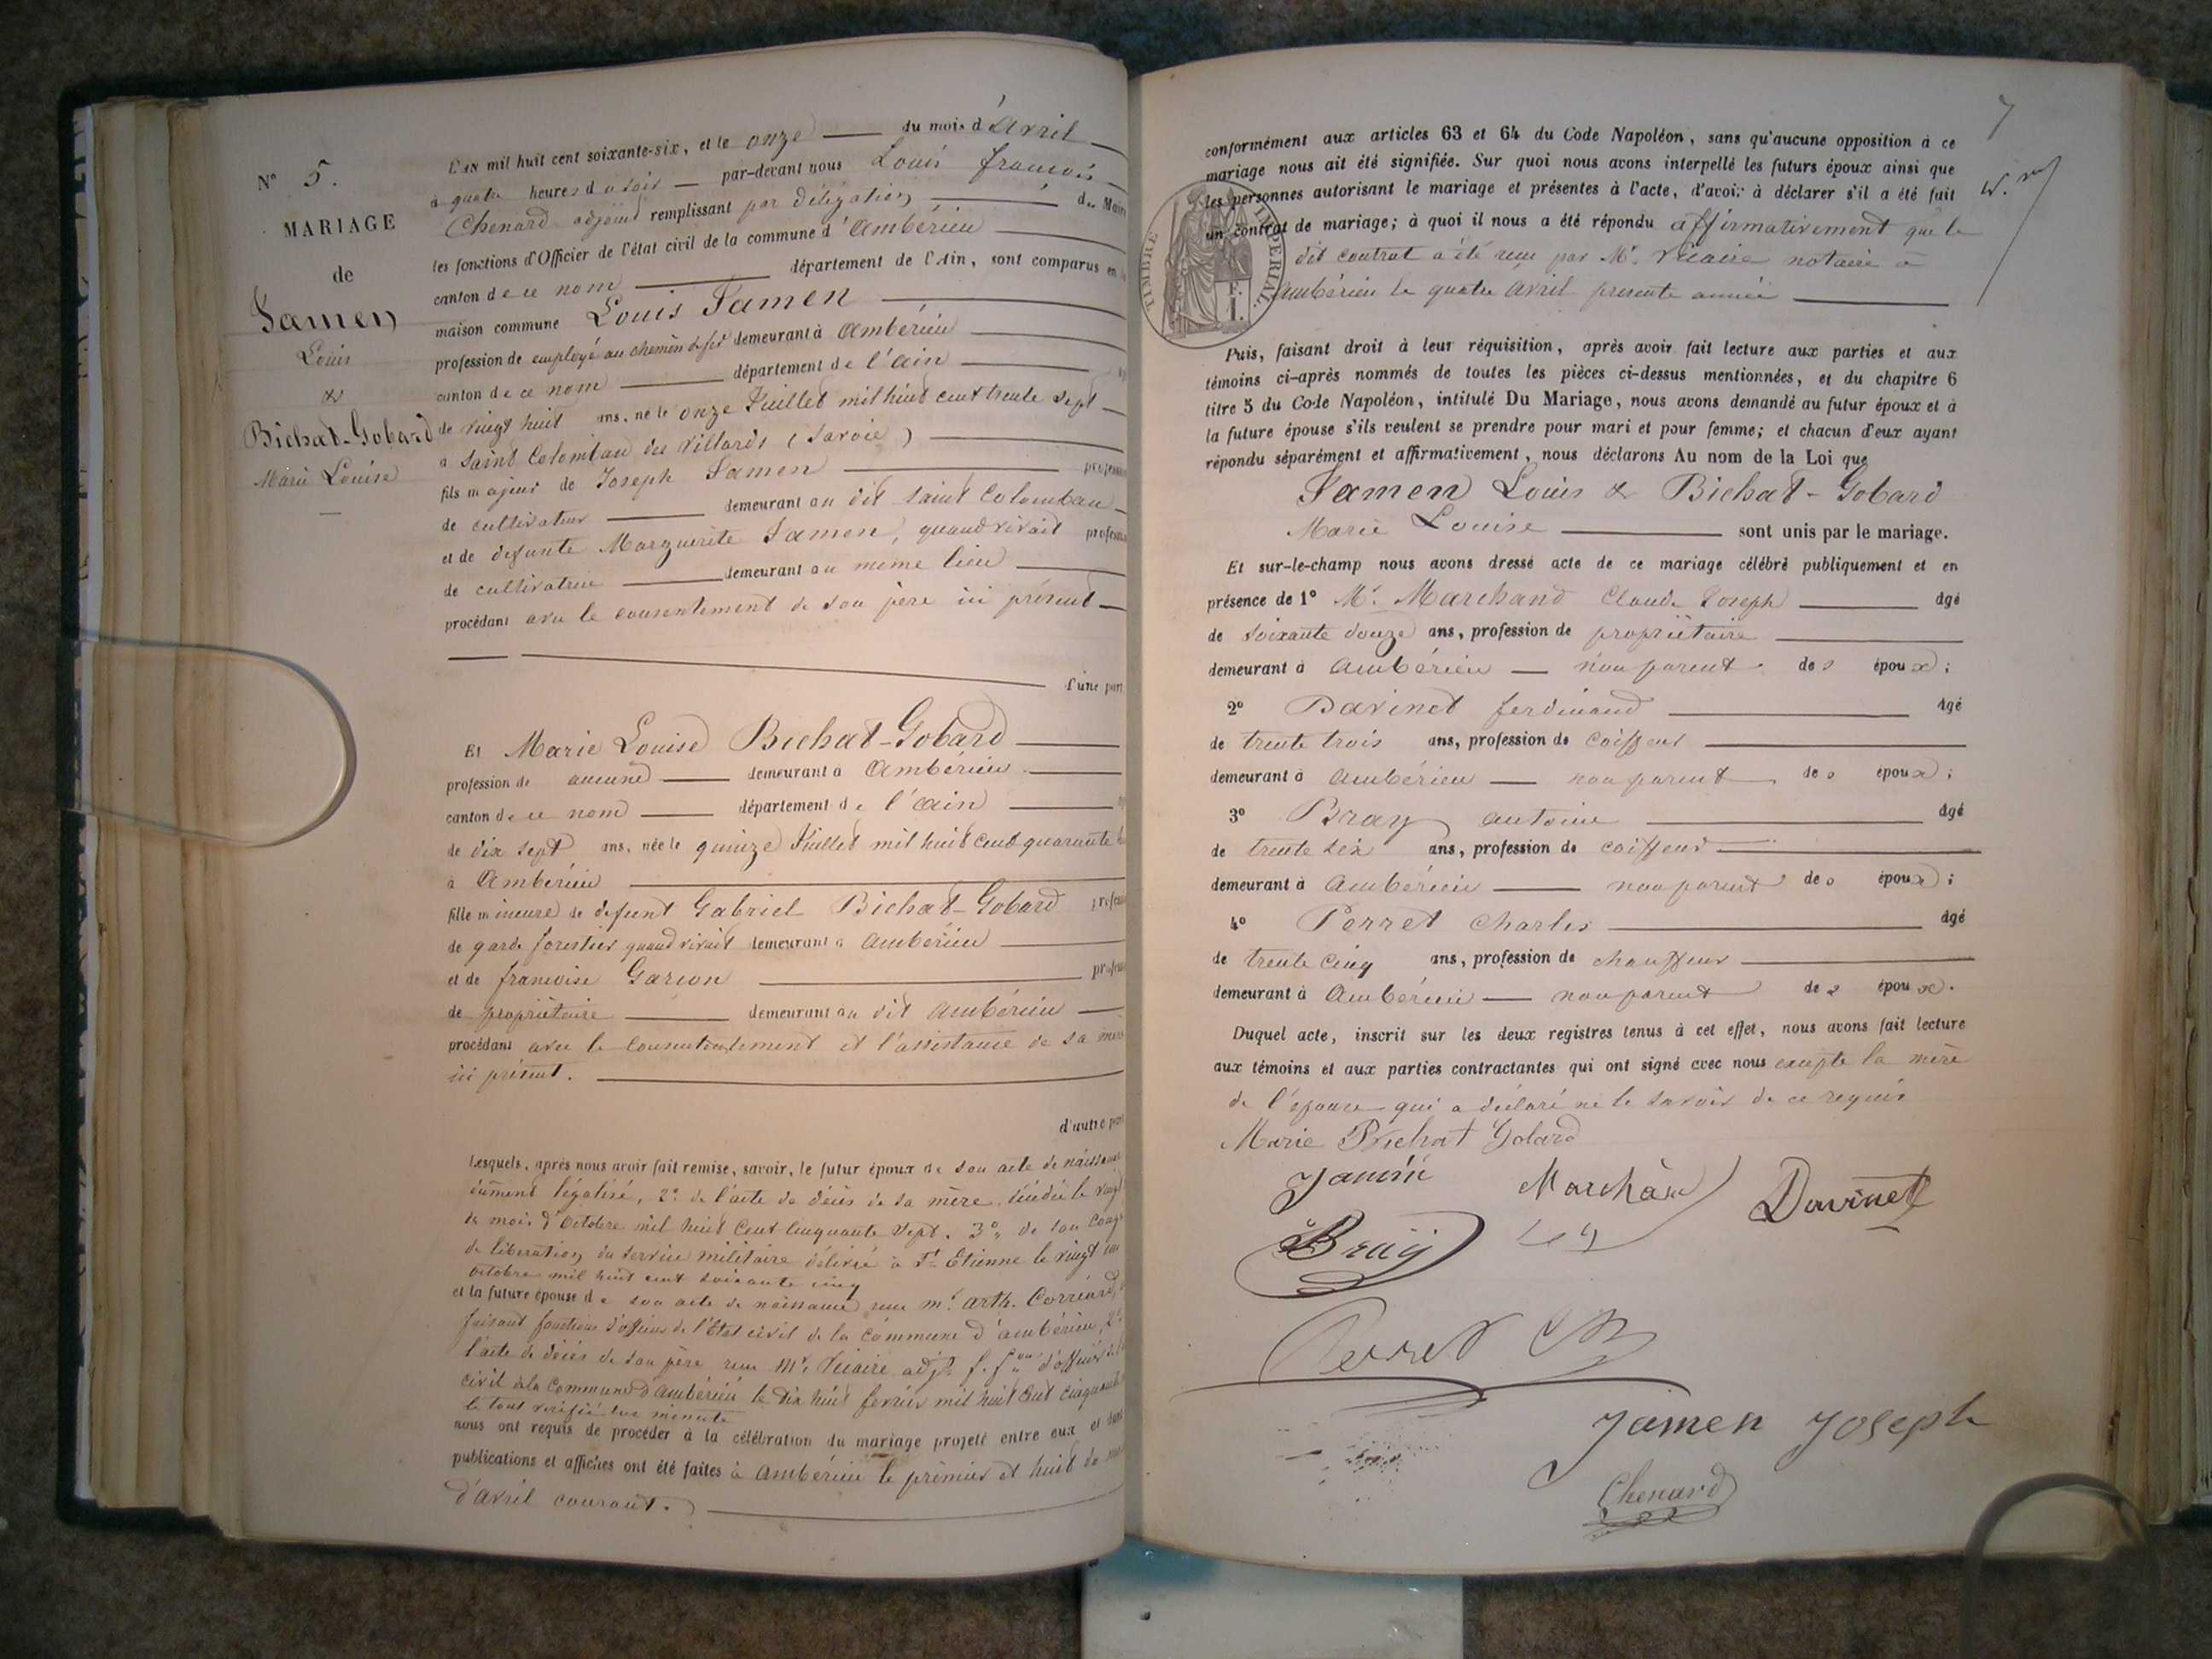 N° 5.
MARIAGE
de
Jamen
Louis
&
Bichat-Gobard
Marie Louise
L'an mil huit cent soixante-six, et le onze du mois d'Avril
à quatre heures du soir par-devant nous Louis françois
Chenard adjoint remplissant par délégation du Maire
les fonctions d'Officier de l'état civil de la commune d'Ambérieu
canton de ce nom département de l'Ain, sont comparus en la
maison commune Louis Jamen
profession de employé au chemin de fer demeurant à Ambérieu
canton de ce nom département de l'ain
de vingt huit ans, né le onze Juillet mil huit cent trente sept
à Saint Colomban des Villards (Savoie)
fils majeur de Joseph Jamen profession
de cultivateur demeurant au dit Saint Colomban
et de defunte Marguerite Jamen, quand vivait profession
de cultivatrice demeurant au même lieu
procédant avec le consentement de son père ici présent
d'une part
Et Marie Louise Bichat-Gobard
profession de aucune demeurant à Ambérieu
canton de ce nom département de l'ain
de dix sept ans, née le quinze Juillet mil huit cent quarante
à Ambérieu
fille mineure de defunt Gabriel Bichat-Gobard profession
de garde forestier quand vivait demeurant à Ambérieu
et de francoise Garcon profession
de propriétaire demeurant au dit ambérieu
procédant avec le consentement et l'assistance de sa mère
ici présent.
d'autre part
Lesquels, après nous avoir fait remise, savoir, le futur époux de son acte de naissance
dûment légalisé, 2° de l'acte de décès de sa mère, décédée le vingt
du mois d'Octobre mil huit cent cinquante sept. 3° de son congé
de libération du service militaire délivré à St Etienne le vingt
octobre mil huit cent soixante cinq
et la future épouse de son acte de naissance reçu mr. arth. Corréard,
faisant fonctions d'officier de l'Etat civil de la commune d'ambérieu, 2°
l'acte de décès de son père reçu Mr. Vicaire adjt. f. fons d'officier de l'état
civil de la commune d'ambérieu le dix huit fevrier mil huit cent cinquante
le tout vérifié sur minute
nous ont requis de procéder à la célébration du mariage projeté entre eux et dont
publications et affiches ont été faites à Ambérieu le premier et huit du mois
d'Avril courant.
7
conformément aux articles 63 et 64 du Code Napoléon, sans qu'aucune opposition à ce
mariage nous ait été signifiée. Sur quoi nous avons interpellé les futurs époux ainsi que
les personnes autorisant le mariage et présentes à l'acte, d'avoir à déclarer s'il a été fait
un contrat de mariage; à quoi il nous a été répondu affirmativement que le
dit contrat a été reçu par Mr. Vicaire notaire à
Ambérieu le quatre Avril presente année
TIMBRE IMPERIAL
Puis, faisant droit à leur réquisition, après avoir fait lecture aux parties et aux
témoins ci-après nommés de toutes les pièces ci-dessus mentionnées, et du chapitre 6
titre 5 du Code Napoléon, intitulé Du Mariage, nous avons demandé au futur époux et à
la future épouse s'ils veulent se prendre pour mari et pour femme; et chacun d'eux ayant
répondu séparément et affirmativement, nous déclarons Au nom de la Loi que
Jamen Louis & Bichat-Gobard
Marie Louise sont unis par le mariage.
Et sur-le-champ nous avons dressé acte de ce mariage célébré publiquement et en
présence de 1° Mr. Marchand Claude Joseph âgé
de soixante douze ans, profession de propriétaire
demeurant à Ambérieu non parent des époux;
2° Davinet ferdinand âgé
de trente trois ans, profession de coiffeur
demeurant à Ambérieu non parent des époux;
3° Bray antoine âgé
de trente six ans, profession de coiffeur
demeurant à Ambérieu non parent des époux;
4° Perret Charles âgé
de trente cinq ans, profession de chauffeur
demeurant à Ambérieu non parent des époux.
Duquel acte, inscrit sur les deux registres tenus à cet effet, nous avons fait lecture
aux témoins et aux parties contractantes qui ont signé avec nous excepte la mère
de l'épouse qui a déclaré ne le savoir de ce requis
Marie Bichat Gobard
Jamen Marchand Davinet
Bray
Perret
Jamen Joseph
Chenard